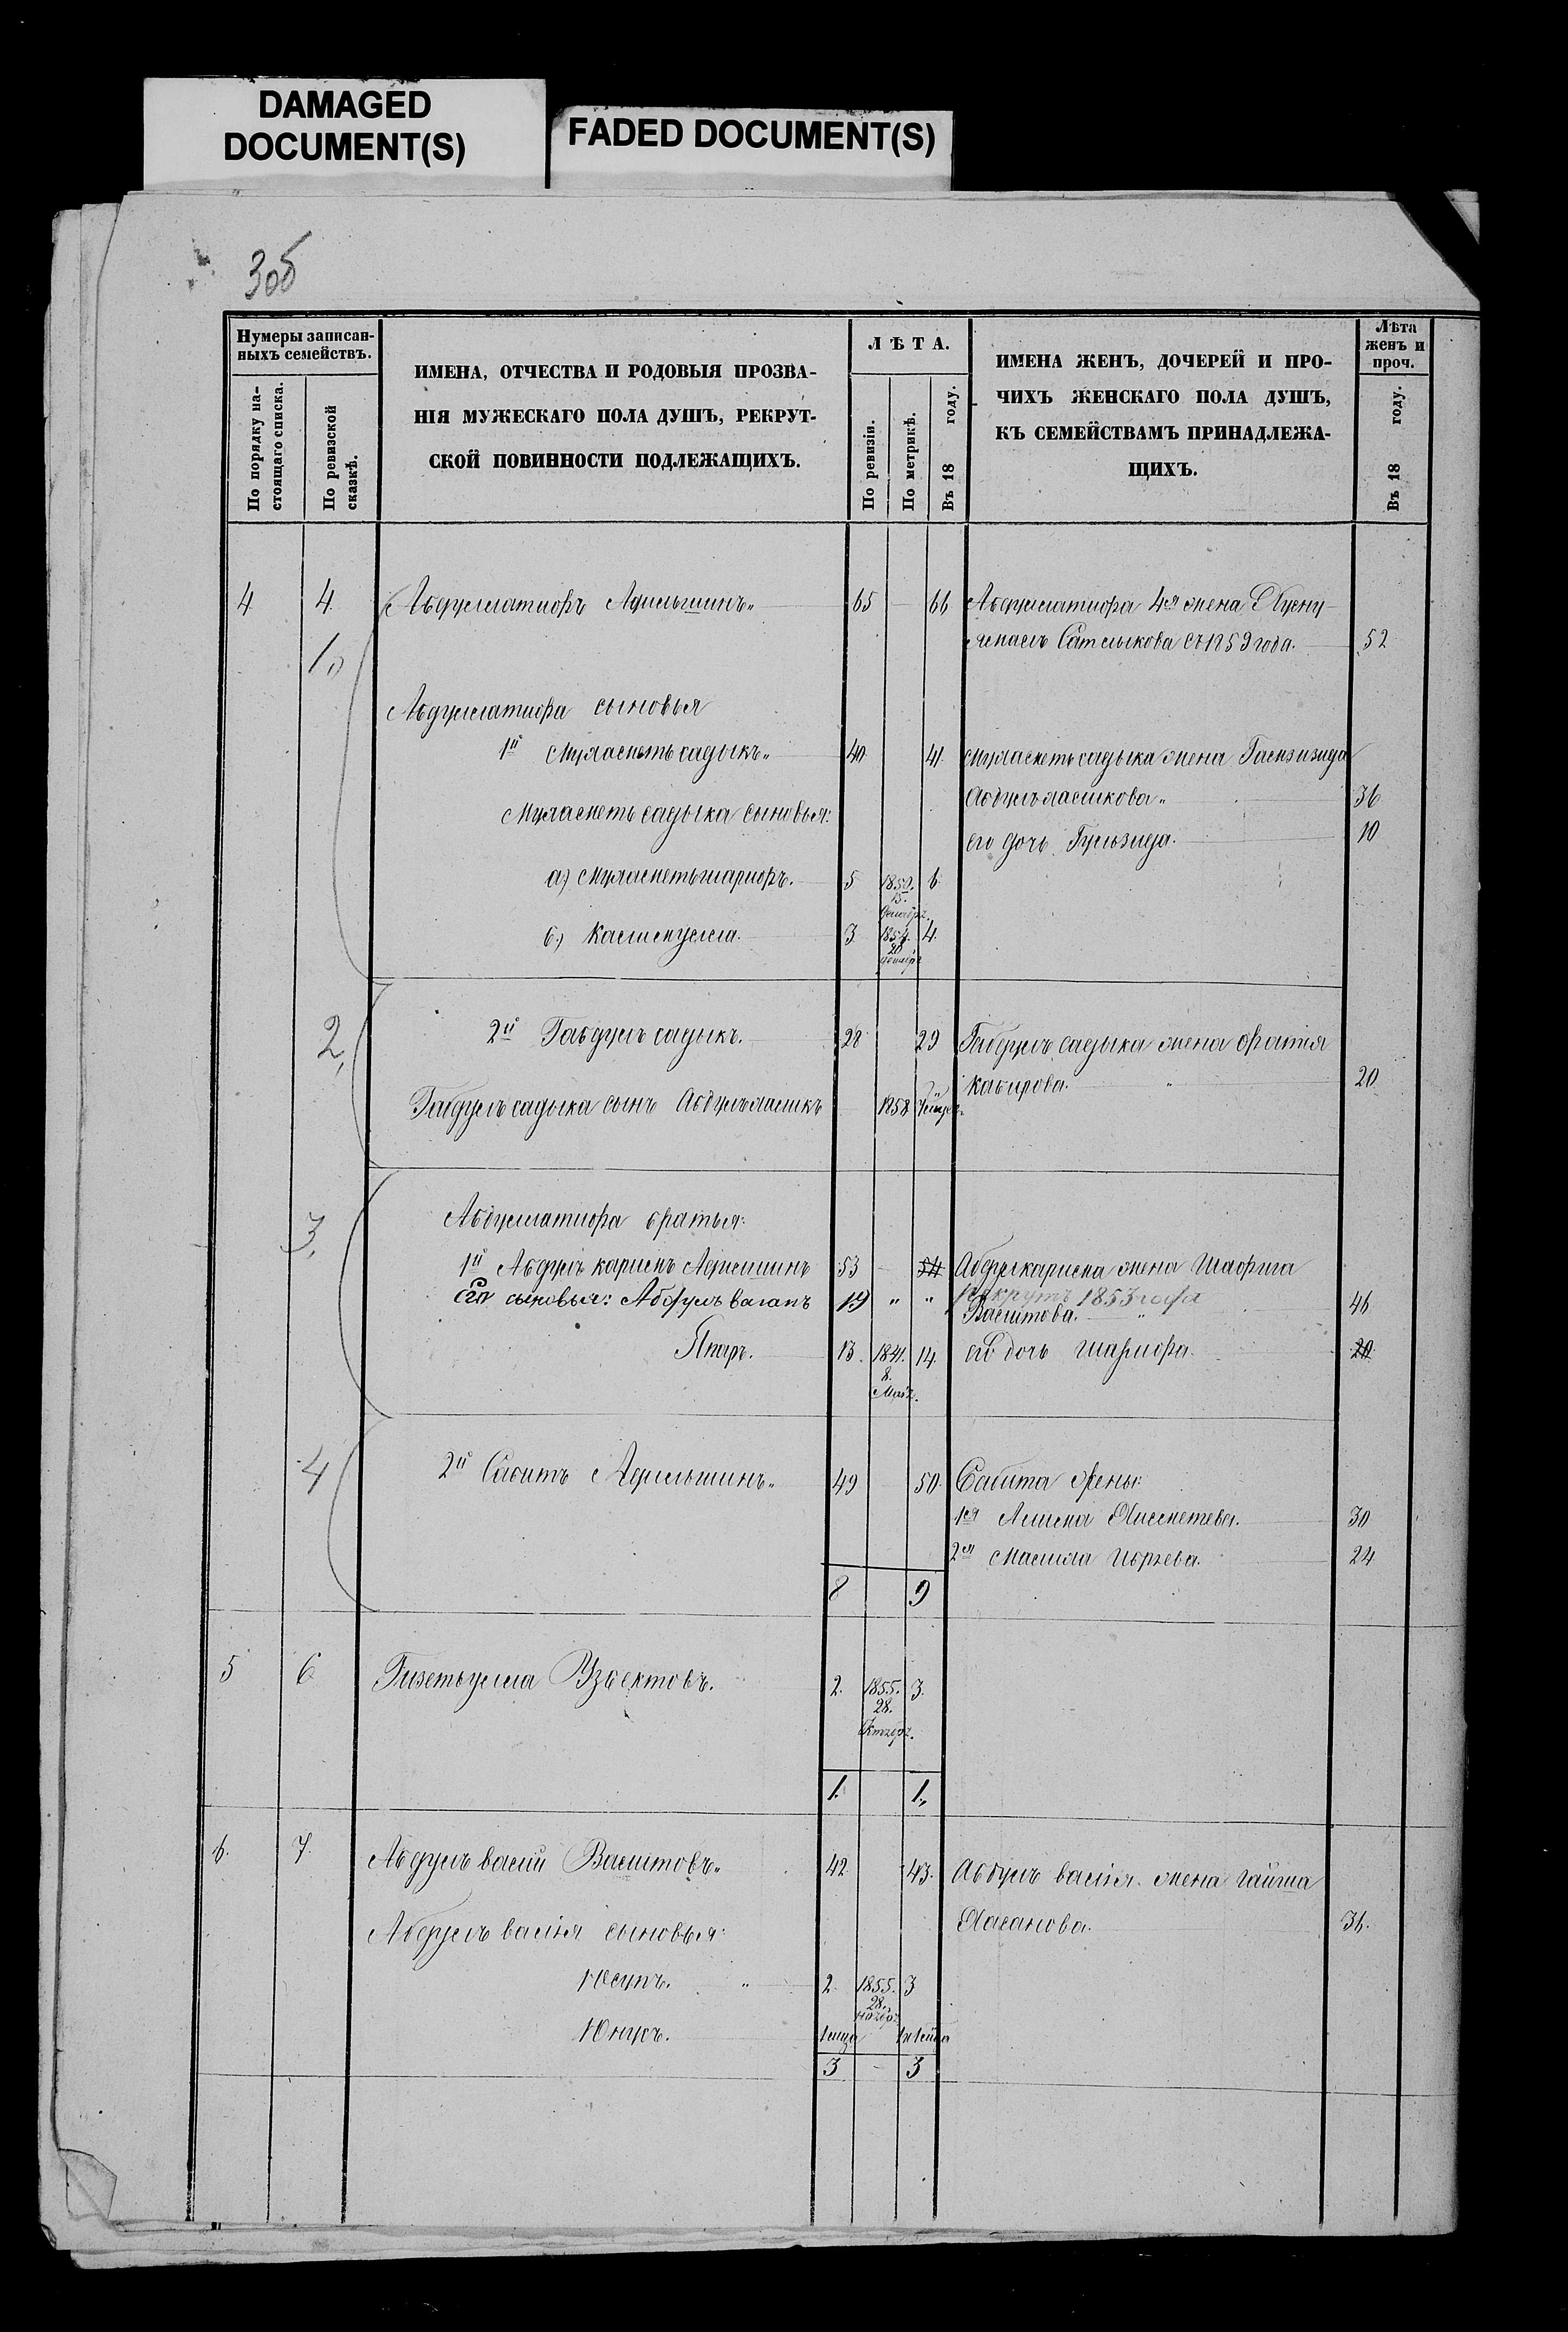 DAMAGED
DOCUMENT(S)
FADED DOCUMENT(S)
30б
Нумеры записан-
ныхъ семействъ.
По порядку на-
стоящаго списка.
По ревизской
сказкѣ.
ИМЕНА, ОТЧЕСТВА И РОДОВЫЯ ПРОЗВА-
НІЯ МУЖЕСКАГО ПОЛА ДУШЪ, РЕКРУТ-
СКОЙ ПОВИННОСТИ ПОДЛЕЖАЩИХЪ.
ЛѢТА.
По ревизіи.
По метрикѣ.
Въ 18 году.
ИМЕНА ЖЕНЪ, ДОЧЕРЕЙ И ПРО-
ЧИХЪ ЖЕНСКАГО ПОЛА ДУШЪ,
КЪ СЕМЕЙСТВАМЪ ПРИНАДЛЕЖА-
ЩИХЪ.
Лѣта
женъ и
проч.
Въ 18 году.
4 4 Абдуллатифъ Адильшинъ 65 — 66 Абдуллатифа 4я жена
Сатлыкова съ 1859 года. 52
1
Абдуллатифа сыновья
1й Мухаметьсадыкъ 40 41 Мухаметьсадыка жена
Мухаметьсадыка сыновья: 36
его дочь Гульзида. 10
а) Мухаметьшарифъ. 5 1850. 6
15.
декабр.
б) Калимулла. 3 1854. 4
20
декабр
2 2й Габдулъ садыкъ. 28 29 Габдулъ садыка жена Фатия
Кабирова. 20
Габдулъ садыка сынъ 1858
3 Абдуллатифа братья:
1й Абдулъ каримъ Адильшинъ 53 — 54 Абдулкарима жена Шафига
Его сыновья: Абдулъ вагапъ 19 " " рекрутъ 1853 года
Валитова. 46
13 1841. 14 его дочь Шарифа. 20
8.
Мая.
4 2й Сабитъ Адильшинъ 49 50 Сабита жены:
1я 30
2я 24
8 9
5 6 2. 1855. 3.
28.
Октябр.
1. 1.
6. 7. Абдулъ валий Валитовъ 42 43. Абдулъ валія жена Гайша
Хасанова. 36.
Абдулъ валія сыновья:
Юсупъ. " 2 1855. 3
28.
ноябр.
Юнусъ.
3 — 3